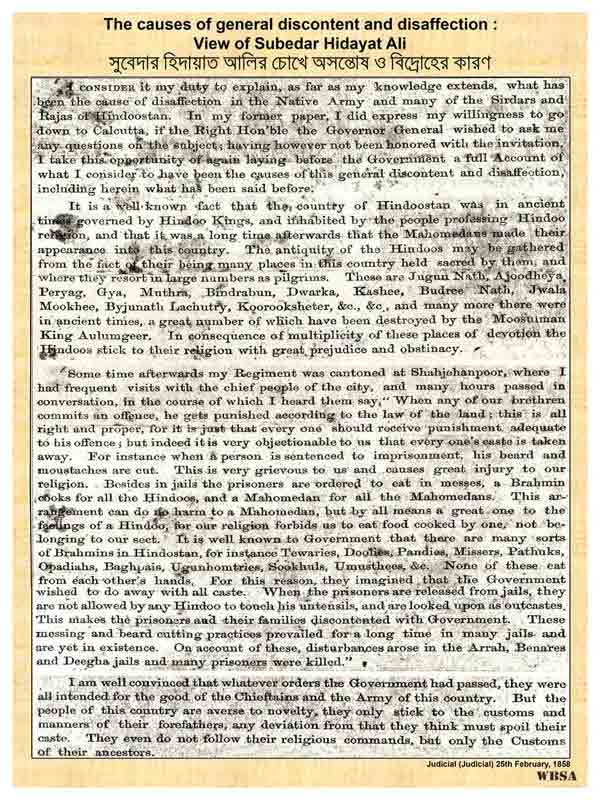 The causes of general discontent and disaffection :
View of Subedar Hidayat Ali
সুবেদার হিদায়াত আলির চোখে অসন্তোষ ও বিদ্রোহের কারণ
I CONSIDER it my duty to explain, as far as my knowledge extends, what has
been the cause of disaffection in the Native Army and many of the Sirdars and
Rajas of Hindoostan. In my former paper, I did express my willingness to go
down to Calcutta, if the Right Hon'ble the Governor General wished to ask me
any questions on the subject; having however not been honored with the invitation,
I take this opportunity of again laying before the Government a full Account of
what I consider to have been the causes of this general discontent and disaffection,
including herein what has been said before.
It is a well known fact that the country of Hindoostan was in ancient
times governed by Hindoo Kings, and inhabited by the people professing Hindoo
religion, and that it was a long time afterwards that the Mahomedans made their
appearance into this country. The antiquity of the Hindoos may be gathered
from the fact of their being many places in this country held sacred by them, and
where they resort in large numbers as pilgrims. These are Jugun Nath, Ajoodheya,
Peryag, Gya, Muthra, Bindrabun, Dwarka, Kashee, Budree Nath, Jwala
Mookhee, Byjunath Lachutry, Koorooksheter, &c., &c., and many more there were
in ancient times, a great number of which have been destroyed by the Moosulman
King Aulumgeer. In consequence of multiplicity of these places of devotion the
Hindoos stick to their religion with great prejudice and obstinacy.
Some time afterwards my Regiment was cantoned at Shahjehanpoor, where I
had frequent visits with the chief people of the city, and many hours passed in
conversation, in the course of which I heard them say, "When any of our brethren
commits an offence, he gets punished according to the law of the land; this is all
right and proper, for it is just that every one should receive punishment adequate
to his offence; but indeed it is very objectionable to us that every one's caste is taken
away. For instance when a person is sentenced to imprisonment, his beard and
moustaches are cut. This is very grievous to us and causes great injury to our
religion. Besides in jails the prisoners are ordered to eat in messes, a Brahmin
cooks for all the Hindoos, and a Mahomedan for all the Mahomedans. This ar-
rangement can do no harm to a Mahomedan, but by all means a great one to the
feelings of a Hindoo, for our religion forbids us to eat food cooked by one, not be-
longing to our sect. It is well known to Government that there are many sorts
of Brahmins in Hindostan, for instance Tewaries, Doobies, Pandies, Missers, Pathuks,
Opadiahs, Baghpais, Ugunhomtries, Sookhuls, Umusthees, &c. None of these eat
from each other's hands. For this reason, they imagined that the Government
wished to do away with all caste. When the prisoners are released from jails, they
are not allowed by any Hindoo to touch his untensils, and are looked upon as outcastes.
This makes the prisoners and their families discontented with Government. These
messing and beard cutting practices prevailed for a long time in many jails and
are yet in existence. On account of these, disturbances arose in the Arrah, Benares
and Deegha jails and many prisoners were killed."
I am well convinced that whatever orders the Government had passed, they were
all intended for the good of the Chieftains and the Army of this country. But the
people of this country are averse to novelty, they only stick to the customs and
manners of their forefathers, any deviation from that they think must spoil their
caste. They even do not follow their religious commands, but only the Customs
of their ancestors.
Judicial (Judicial) 25th February, 1858
WBSA